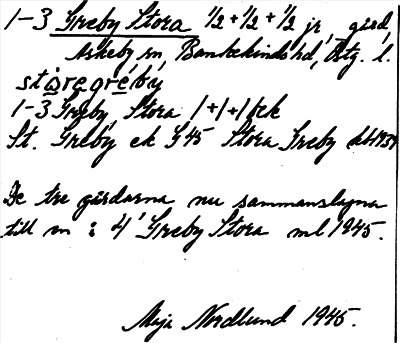 1-3 Greby Stora 1/2 + 1/2 + 1/2 jr, gård,
Askeby sn, Bankekinds hd, Östg. l.
ståregréby
1-3 Greby, Stora 1+1+1 fsk
St. Greby ek G 45 Stora Greby kb 1939
De tre gårdarna nu sammanslagna
till en : 4 Greby Stora ml 1945.
Maja Nordlund 1945.